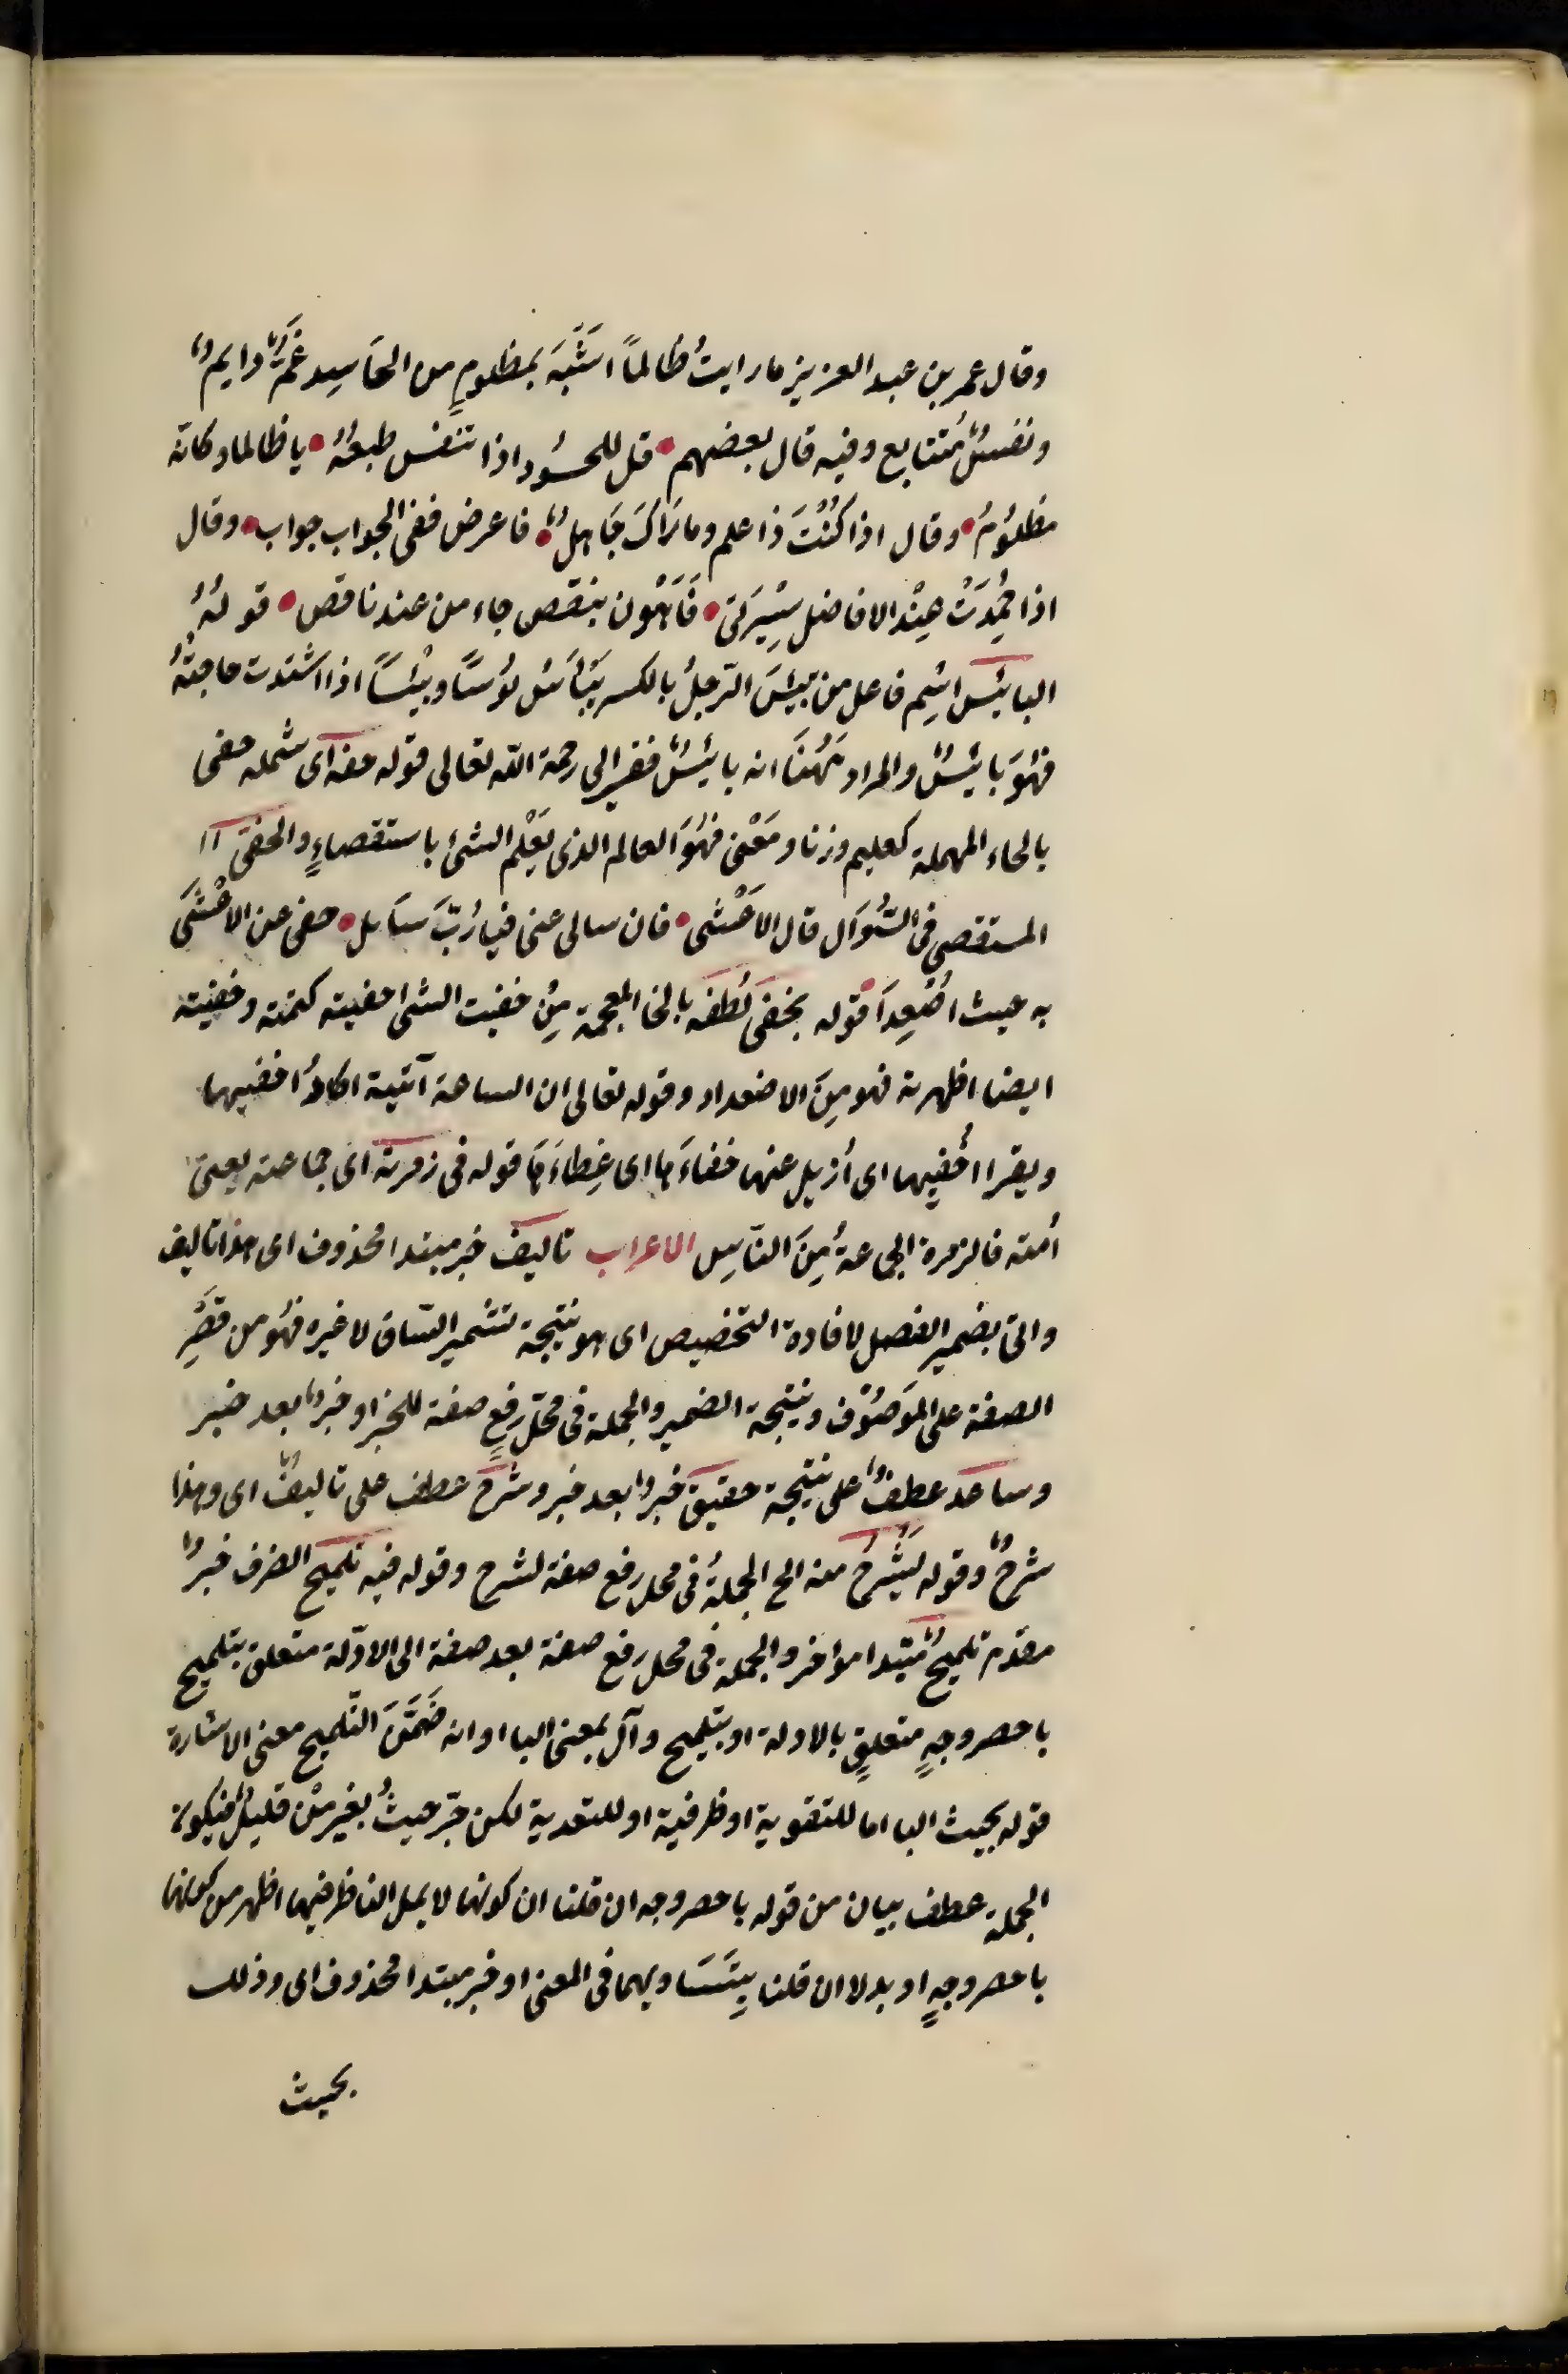 وقال عمر بن عبد العزيز ما رايتُ ظالماً اشْبَهَ بمظلومٍ من الحَاسِد غَمٌّ دايمٌ
ونفسٌ مُتتابع وفيه قال بعضهم • قل للحسُود اذا تنفس طبعهُ • يا ظالما وكانه
مظلوُمُ • وقال اذا كُنْتَ ذا علم وماراكَ جَاهلٌ • فاعرض ففى الجواب جواب • وقال
اذا حُمِدَتْ عِنْد الافاضل سِيْرَتى • فَاَهْون بنقص جاء من عند ناقص • قولهُ
البائِس اسْم فاعل من بَيْئسَ الرّجلُ بالكسر يَبْأسُ بُوُسًا وبئسًا اذا اشتدت حاجتهُ
فهُوَ بائسٌ والمراد هَهُنَا انه بائسٌ فقير الى رحمة الله تعالى قوله حفه اى شمله حفى
بالحاء المهملة كعليم وزنا ومَعْنى فهُوَ العالم الذى يَعْلم الشئ باستقصاءٍ والحفى اا
المستقصى فى السُّوَال قال الاعْشى • فان سالى عنى فيا رُبَّ سَايل • حفى عن الاعْشَى
به حيث اصْعِدَا • قوله بخفى لطفه بالخا المعجمة مِن خفيت الشئ اخفيته كتمته وخفيته
ايضا اظهرته فهو مِنَ الاضداد وقوله تعالى ان الساعة آتية اكادُ اخفيها
ويقرا اَخفيها اى اُزيل عنها خفاءَها اى غِطاءَهَا قوله فى زمرته اى جماعته يعنى
اُمته فالزمرة الجماعةُ مِنَ النّاسِ الاعراب تاليف خبر مبتدا محذوف اى هذا تاليف
واتى بضمير الفصل لافادة التخصيص اى هو نتيجة تشمير السّاق لا غيره فهُوَ من قصْرِ
الصفة على المَوصُوْف ونتيجة الضمير والجملة فى محلّ رفعٍ صفة للخبر او خبرٌ بعد خبر
وساعد عطفٌ على نتيجة حقيق خبر بعد خبر وشرح عطف على تاليفٌ اى وهذا
شرحٌ وقوله يَشْرحُ منه الخ الجملةُ فى محل رفع صفة لشرح وقوله فيه تلميح الظرف خبرٌ
مقدم تلميحٌ مُبتدا مواخر والجملة فى محل رفع صفة بعد صفة الى الادلّة متعلق بتلميح
باحصر وجهٍ متعلقٍ بالادلة او بتلميح وآلى بمعنى البا او انه ضَمَّنَ التّلميح معنى الاشارة
قوله بحيث البا اما للتقوية او ظرفية او للتعدية لكن جّر حيثُ بغير مِنْ قليلٌ فيكون
الجملة عطف بيان من قوله باحصر وجه ان قلنا ان كونها لا يمل الناظر فيها اظهر من كونها
باحصر وجهٍ او بدلا ان قلنا بِتَسَاويهما فى المعنى او خبر مبتدا محذوف اى وذلك
بحيث